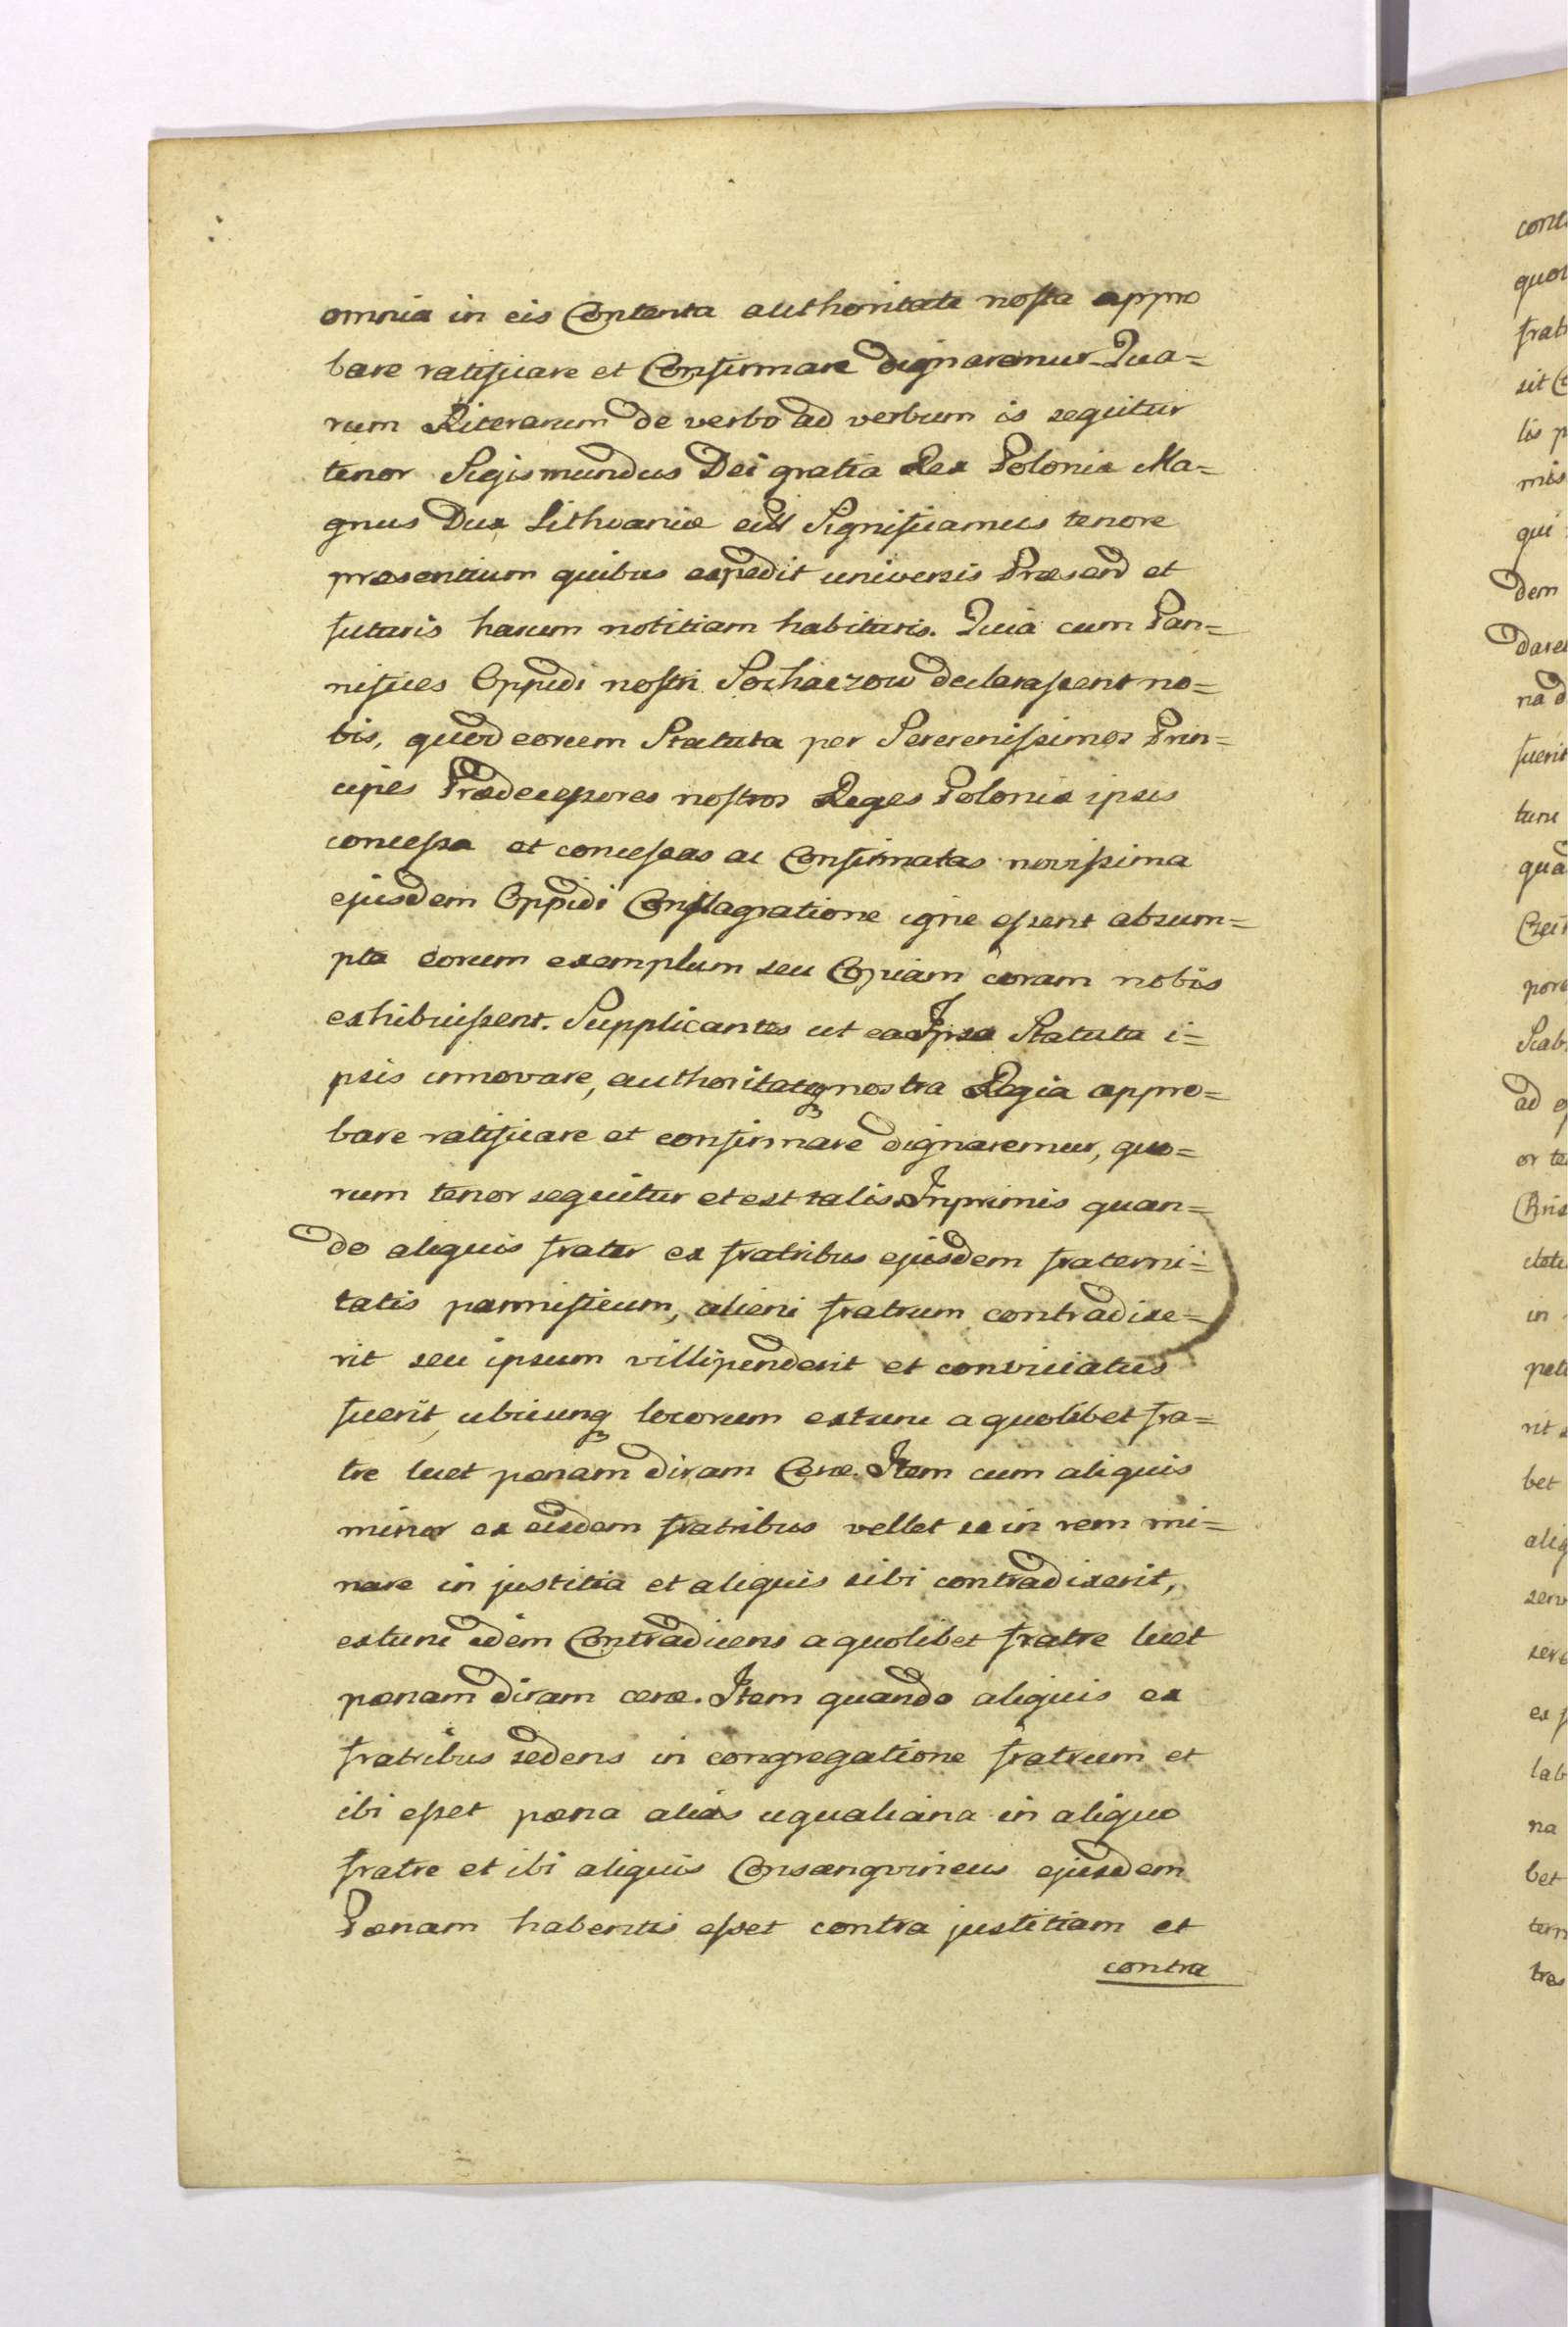 omnia in eis Contenta authoritate nosta appro
bare ratificare et Confirmare dignaremur Qua=
rum Literarum de verbo ad verbum is sequitur
tenor Sigismundus Dei gratia Rex Poloniæ Ma=
gnus Dux Lithvaniæ Significamus tenore
præsentium quibus expedit universis Præsend et
futuris harum notitiam habituris. Quia cum Pan=
nifices Oppidi nostri Sochaczow declarassent no=
bis, quod eorum Statuta per Sererenissimos Prin=
cipes Prædecessores nostros Reges Poloniæ ipsis
concessa et concessas ac Confirmatas novissima
ejusdem Oppidi Conflagratione igne essent absum=
pta eorum exemplum seu Copiam coram nobis
exhibuissent. Supplicantes ut ea Ipsa Statuta i=
psis innovare, authoritateq nostra Regia appro=
bare ratificare et confirmare dignaremur, quo=
rum tenor sequitur et est talis Inprimis quan=
do aliquis frater ex fratribus ejusdem fraterni=
tatis pannificum, alieni fratrum contradixe=
rit seu ipsum villipenderit et conviciatus
fuerit, ubicunq locorum extunc a quolibet fra=
tre luet pænam diram Ceræ. Item cum aliquis
minor ex eisdem fratribus vellet se in rem mi=
nare in justitia et aliquis sibi contradixerit,
extunc idem Contradicens a quolibet fratre luet
pænam diram ceræ. Item quando aliquis ex
fratribus sedens in congregatione fratrum et
ibi esset pæna alias ugualiana in aliquo
fratre et ibi aliquis Consangvineus ejusdem
Pænam habentis esset contra justitiam et
contra